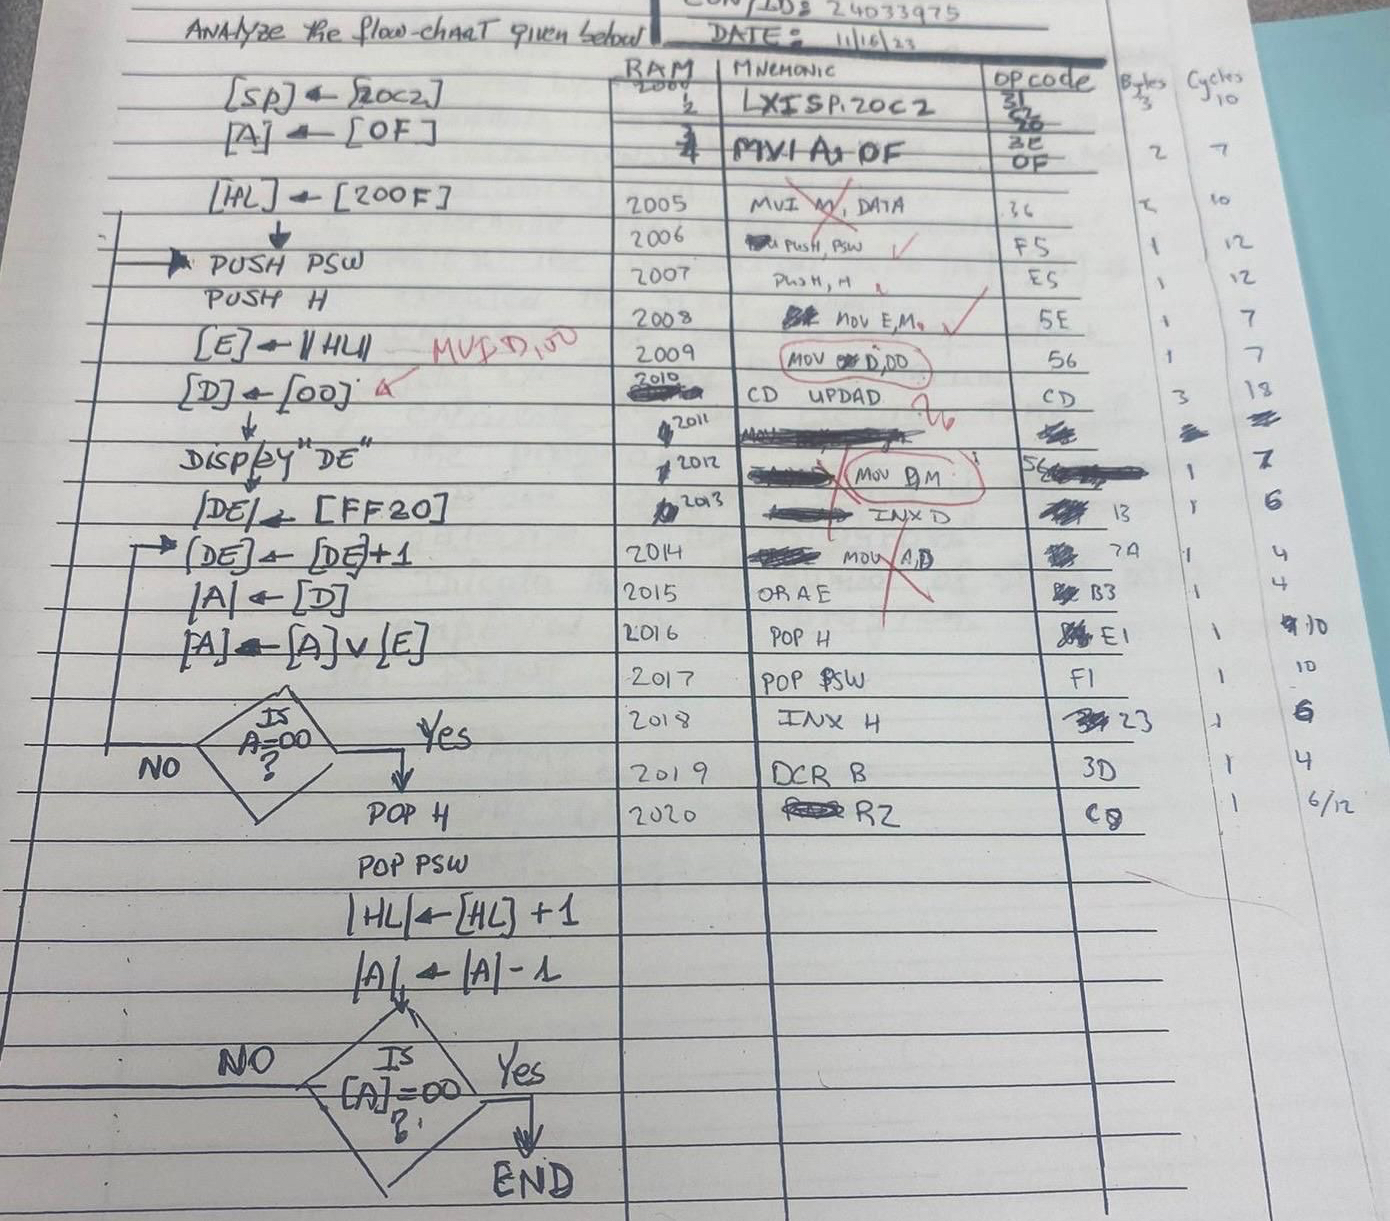 CON/ID: 24033975
ANALYZE the flow-chart given below DATE: 11/16/23
RAM MNEMONIC OPcode Bytes Cycles
[SP] ← [20C2] 2000 LXISP, 20C2 31 3 10
1
2 C2
20
[A] ← [OF] 3 MVI A, OF 3E 2 7
4 OF
[HL] ← [200F] 2005 MVI M, DATA 36 2 10
2006 PUSH, PSW F5 1 12
PUSH PSW 2007 PUSH, H E5 1 12
PUSH H 2008 MOV E,M 5E 1 7
[E] ← ||HL|| MVI D,00 2009 MOV D,00 56 1 7
[D] ← [00] 2010 CD UPDAD CD 3 18
2011
DISPLAY "DE" 2012 MOV D,M 56 1 7
|DE| ← [FF20] 2013 INX D 13 1 6
[DE] ← [DE]+1 2014 MOV A,D 7A 1 4
|A| ← [D] 2015 ORA E B3 1 4
[A] ← [A] v [E] 2016 POP H E1 1 10
2017 POP PSW F1 1 10
IS
A=00
?
Yes
NO
2018 INX H 23 1 6
2019 DCR B 3D 1 4
POP H 2020 RZ C8 1 6/12
POP PSW
|HL| ← [HL] + 1
|A| ← |A| - 1
NO IS Yes
[A]=00
?
END